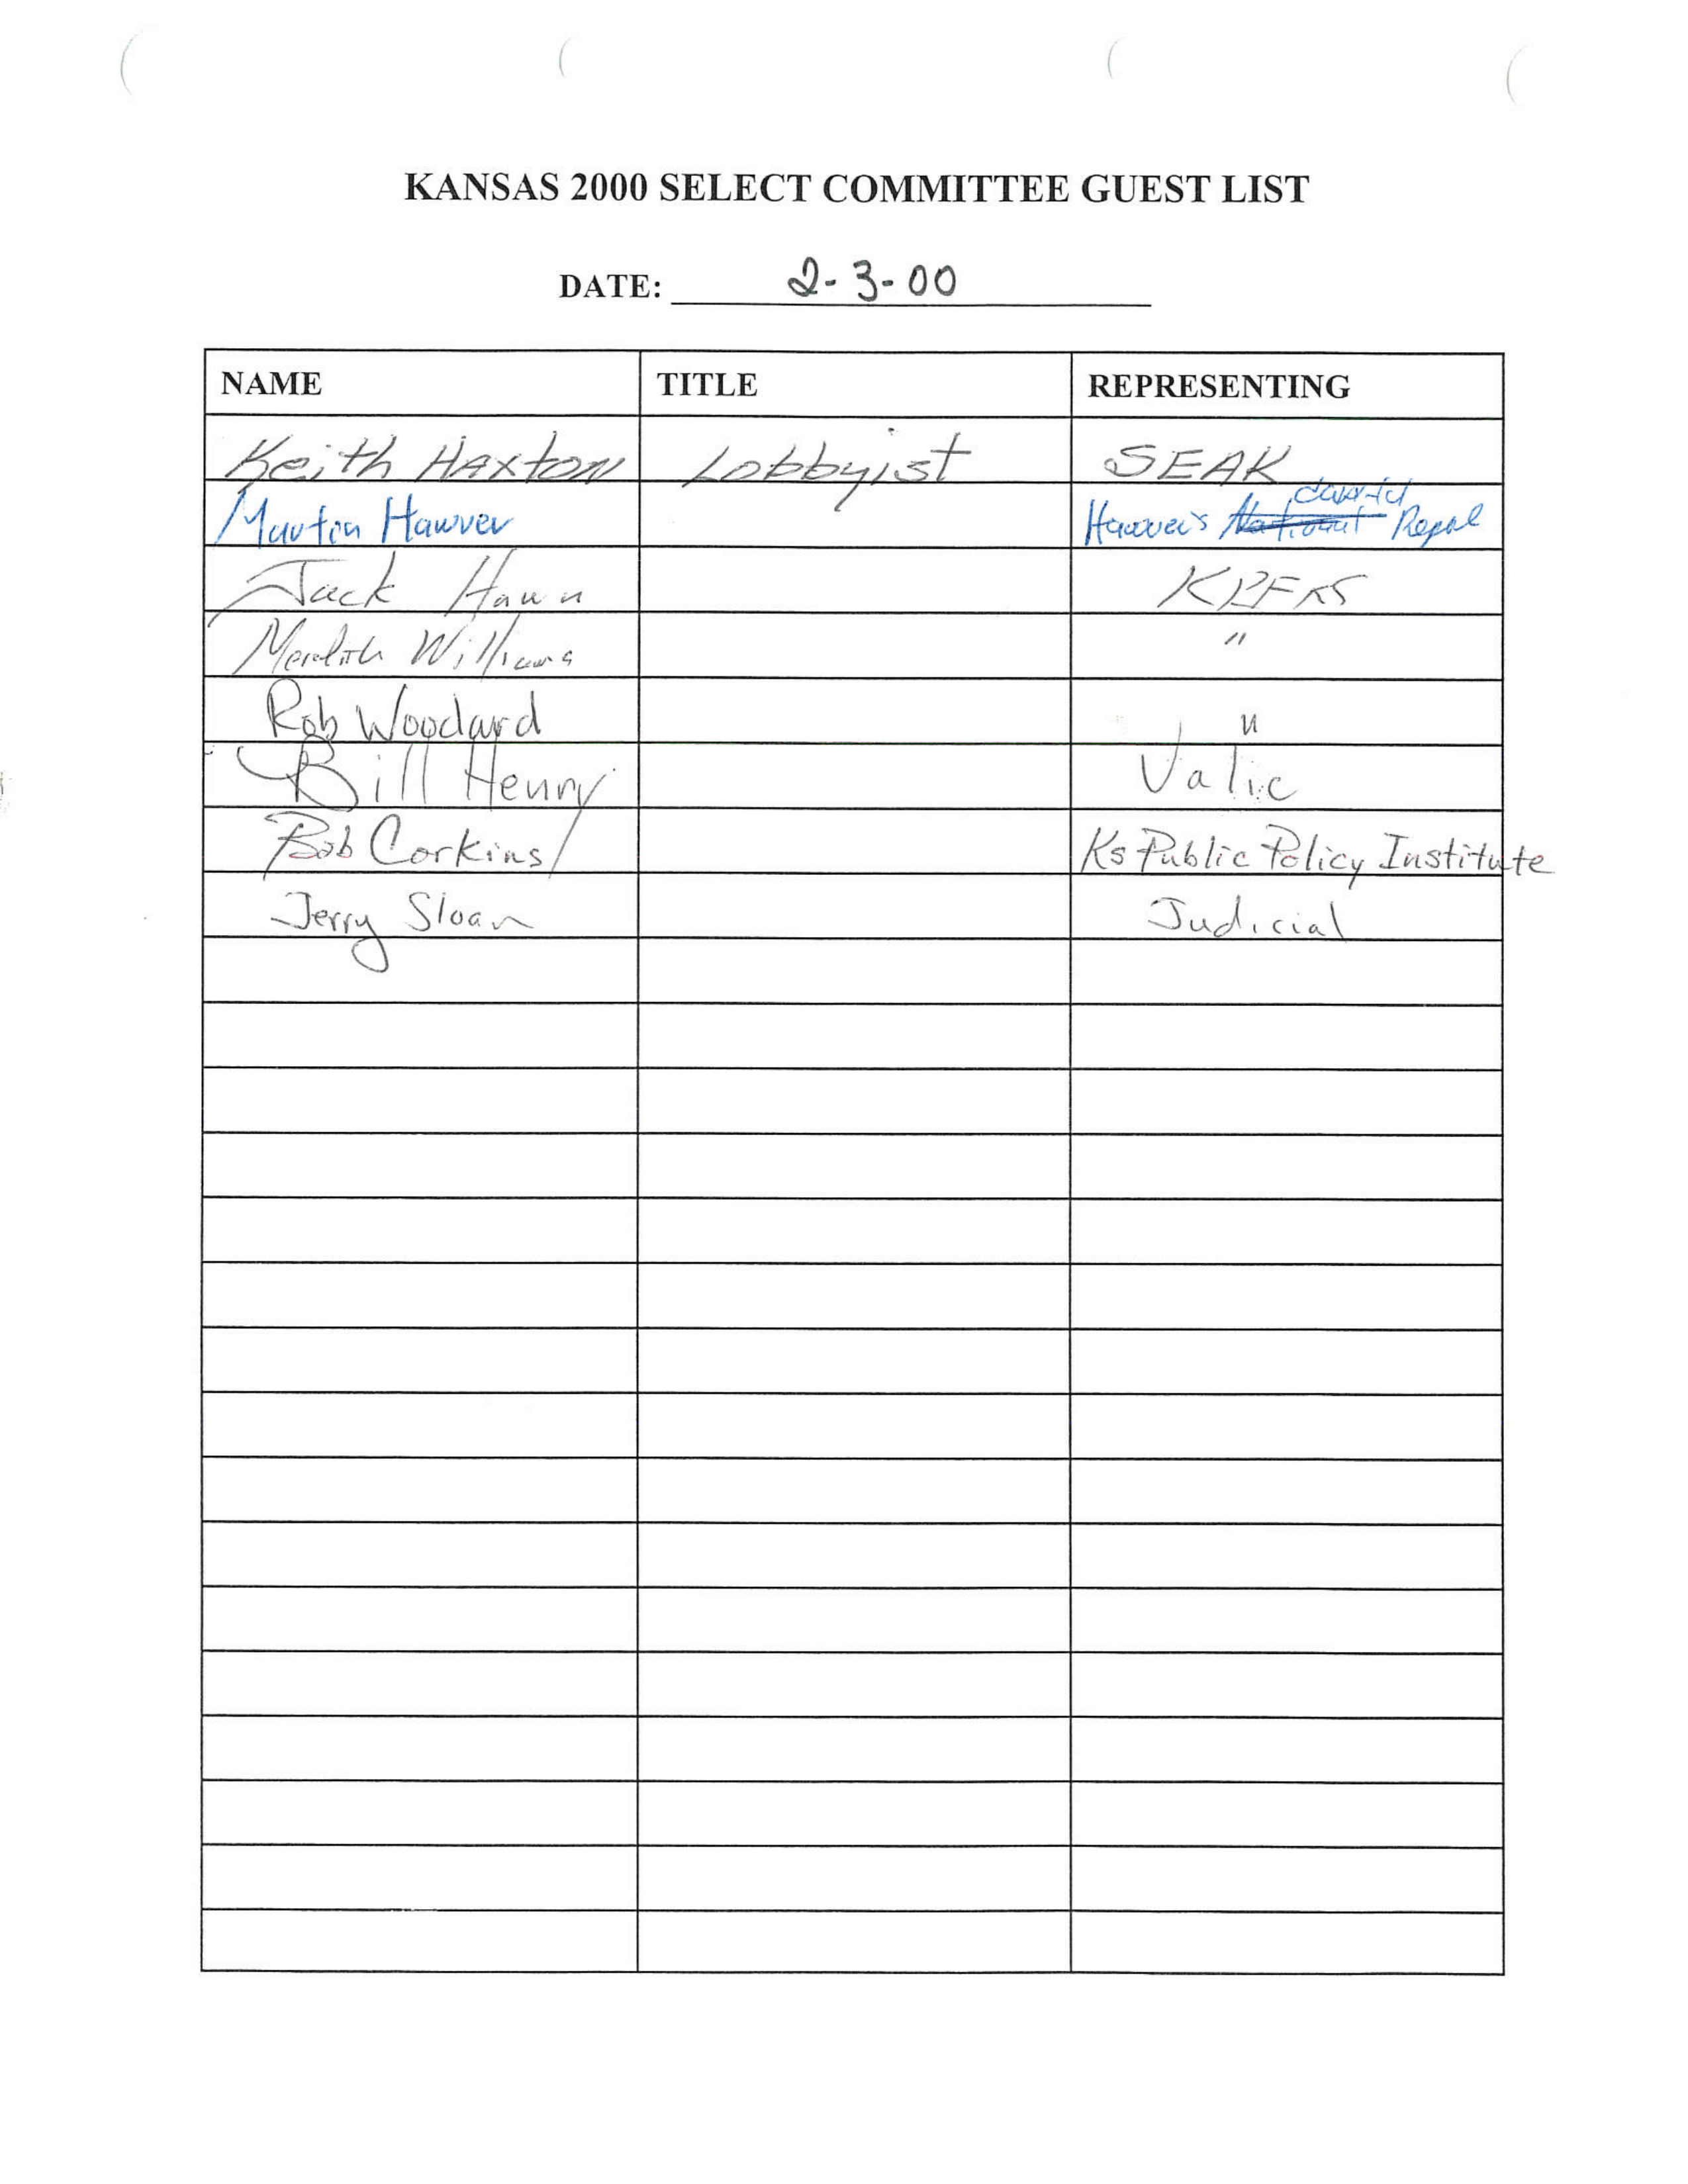 KANSAS 2000 SELECT COMMITTEE GUEST LIST
DATE: 2-3-00
NAME TITLE REPRESENTING
Keith Haxton Lobbyist SEAK
Martin Hawver Hawver's Report
Jack Hawn KPERS
Meredith Williams "
Rob Woodard "
Bill Henry Valic
Bob Corkins Ks Public Policy Institute
Jerry Sloan Judicial